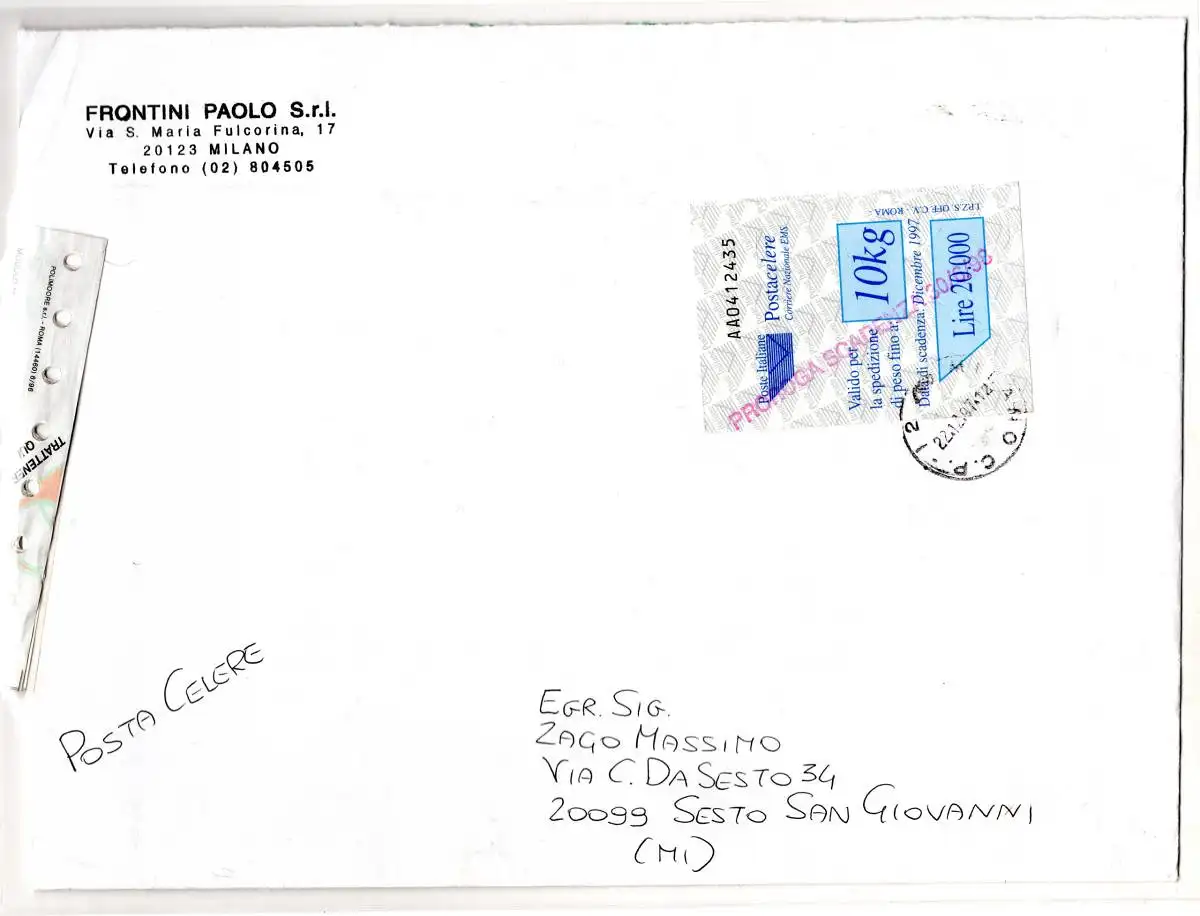 FRONTINI PAOLO S.r.l.
Via S. Maria Fulcorina, 17
20123 MILANO
Telefono (02) 804505
AA0412435
Poste Italiane
Postacelere
Corriere Nazionale EMS
Valido per
la spedizione
di peso fino a
10kg
Data di scadenza: Dicembre 1997
Lire 20.000
I.P.Z.S. OFF. C.V. - ROMA
PROROGA SCADENZA 30/6/98
22.12.97.12
C.P.
POLIMOORE s.r.l. - ROMA (14460) 6/96
TRATTENE
POSTA CELERE
EGR. SIG.
ZAGO MASSIMO
VIA C. DA SESTO 34
20099 SESTO SAN GIOVANNI
(MI)